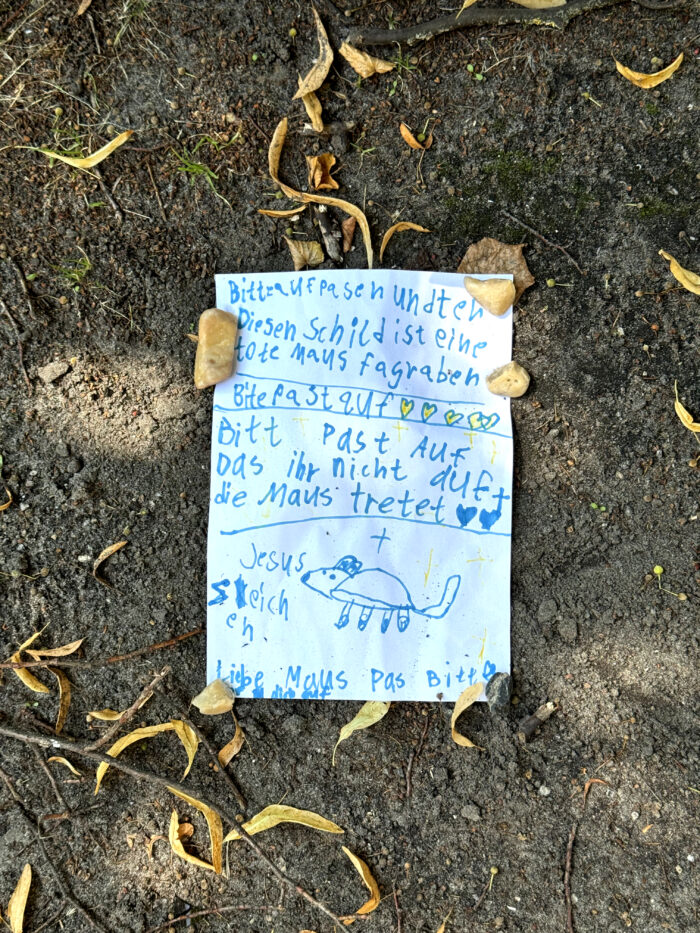 Bitte aufpasen undten
Diesen Schild ist eine
tote Maus fagraben
Bite Past auf
Bitt Past Auf
Das ihr nicht duft
die Maus tretet
Jesus
steich
en
Liebe Maus Pas Bitte
auf